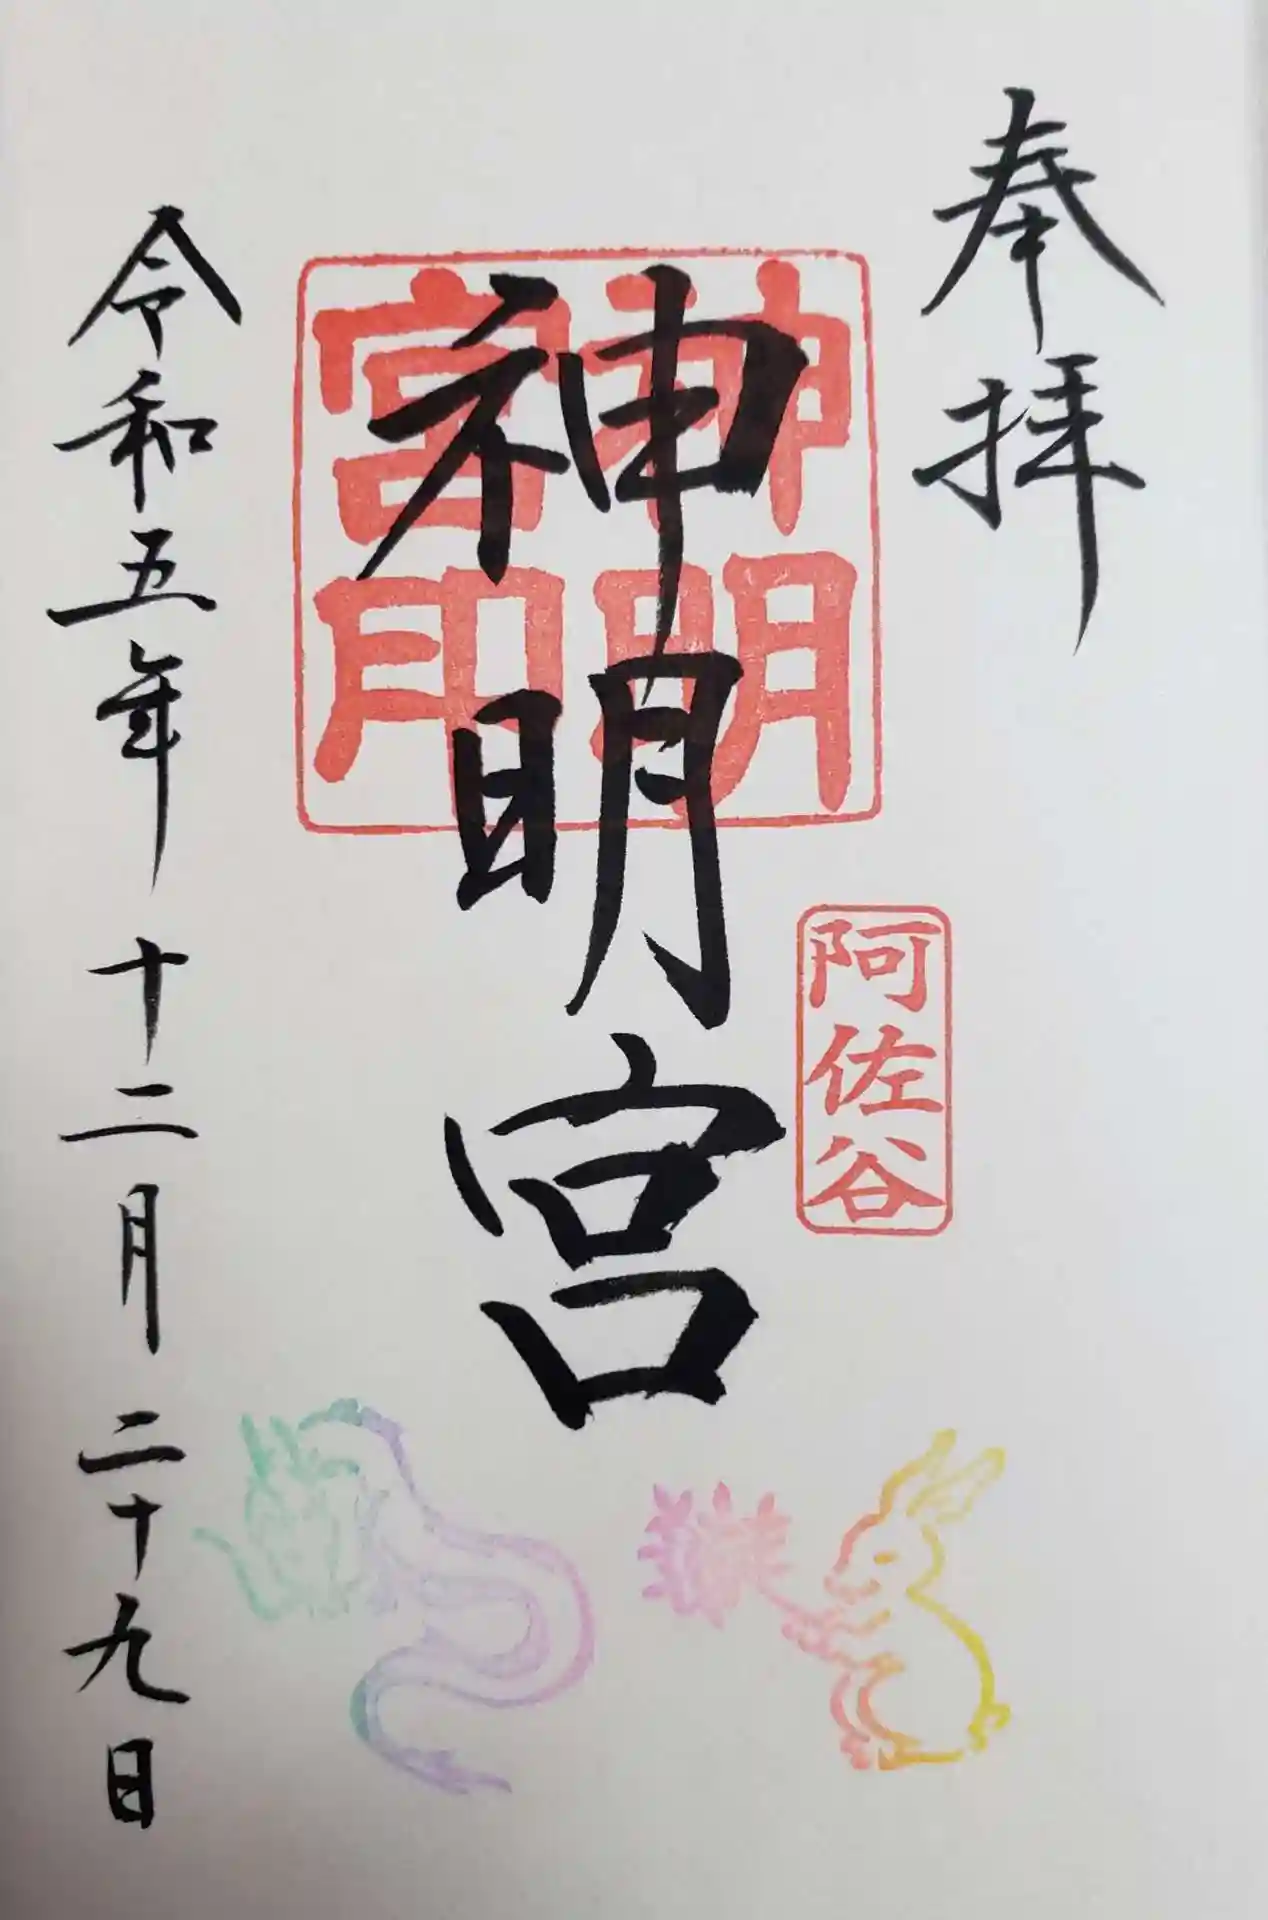 奉拝
神明
宮印
神明宮
阿佐谷
令和五年 十二月 二十九日